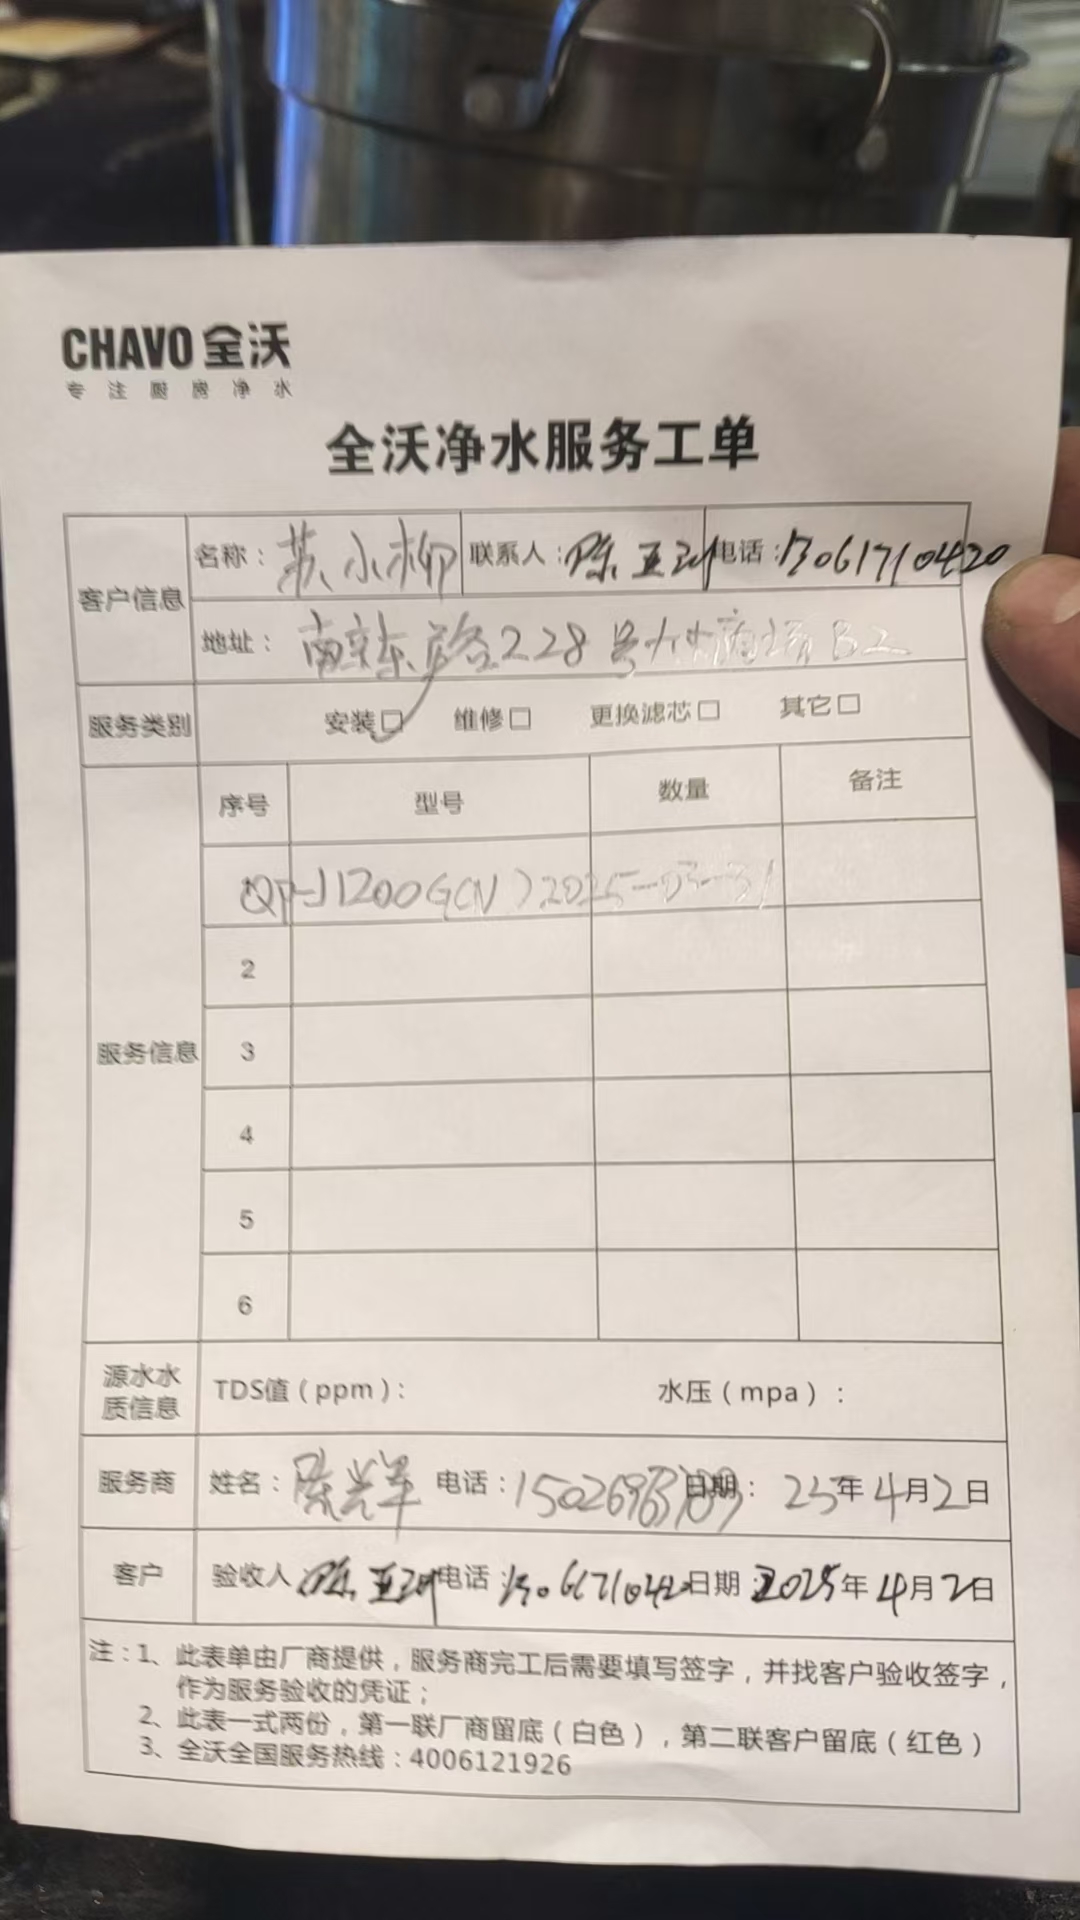 CHAVO 全沃
专注厨房净水
全沃净水服务工单
客户信息 名称：苏小柳 联系人：陈亚 电话：13061710420
地址：南京东路228号 B2
服务类别 安装☑ 维修□ 更换滤芯□ 其它□
服务信息 序号 型号 数量 备注
QP-J1200G(N) 2025-03-31
2
3
4
5
6
源水水质信息 TDS值（ppm）： 水压（mpa）：
服务商 姓名：陈 电话： 日期： 25年4月2日
客户 验收人 陈亚 电话：13061710420 日期：2025年4月2日
注：1、此表单由厂商提供，服务商完工后需要填写签字，并找客户验收签字，
作为服务验收的凭证；
2、此表一式两份，第一联厂商留底（白色），第二联客户留底（红色）
3、全沃全国服务热线：4006121926